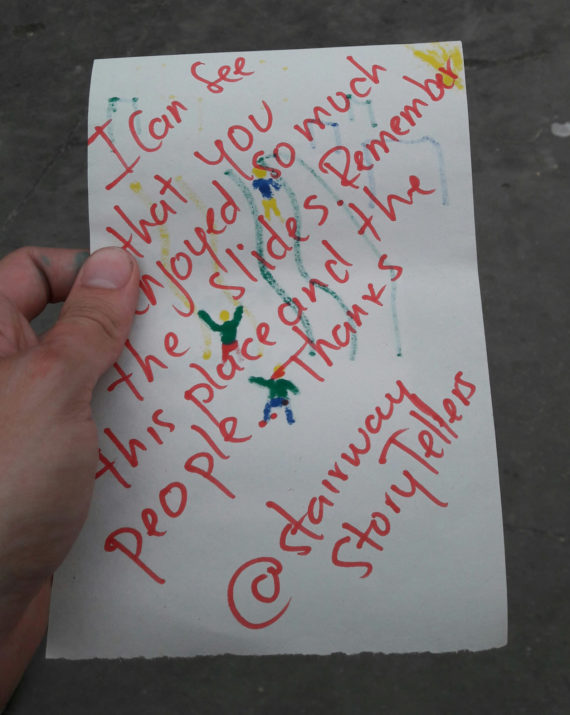 I Can See
that you
enjoyed so much
the slides. Remember
this place and the
people. Thanks
@stairway
StoryTellers